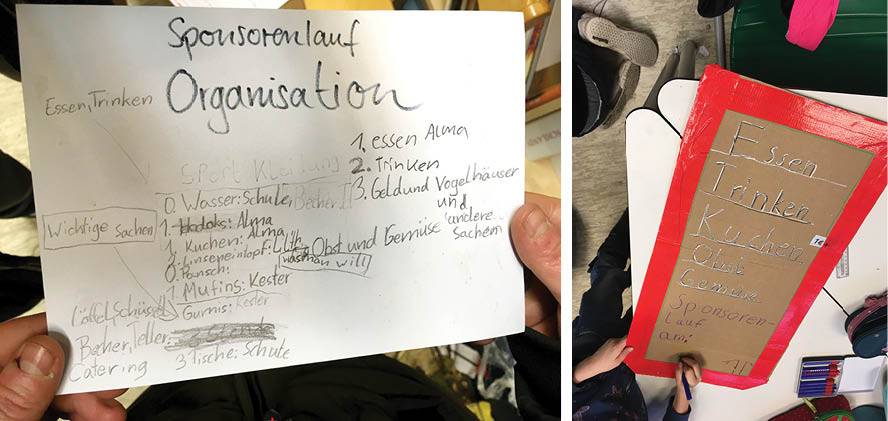 Sponsorenlauf
Organisation
Essen, Trinken
Sport Kleidung
Wichtige Sachen
0. Wasser: Schule, Becher
1. Hodoks: Alma
1. Kuchen: Alma
Linseneintopf:
0. Punsch:
1. Mufins: Kester
Gurnis: Kester
Obst und Gemüse
was man will
Löffel, Schüssel
Becher, Teller:
Catering
3 Tische: Schule
1. essen Alma
2. Trinken
3. Geld und Vogelhäuser
und
andere
Sachen
Essen
Trinken
Kuchen
Obst
Gemüse
Sponsoren-
lauf
am: